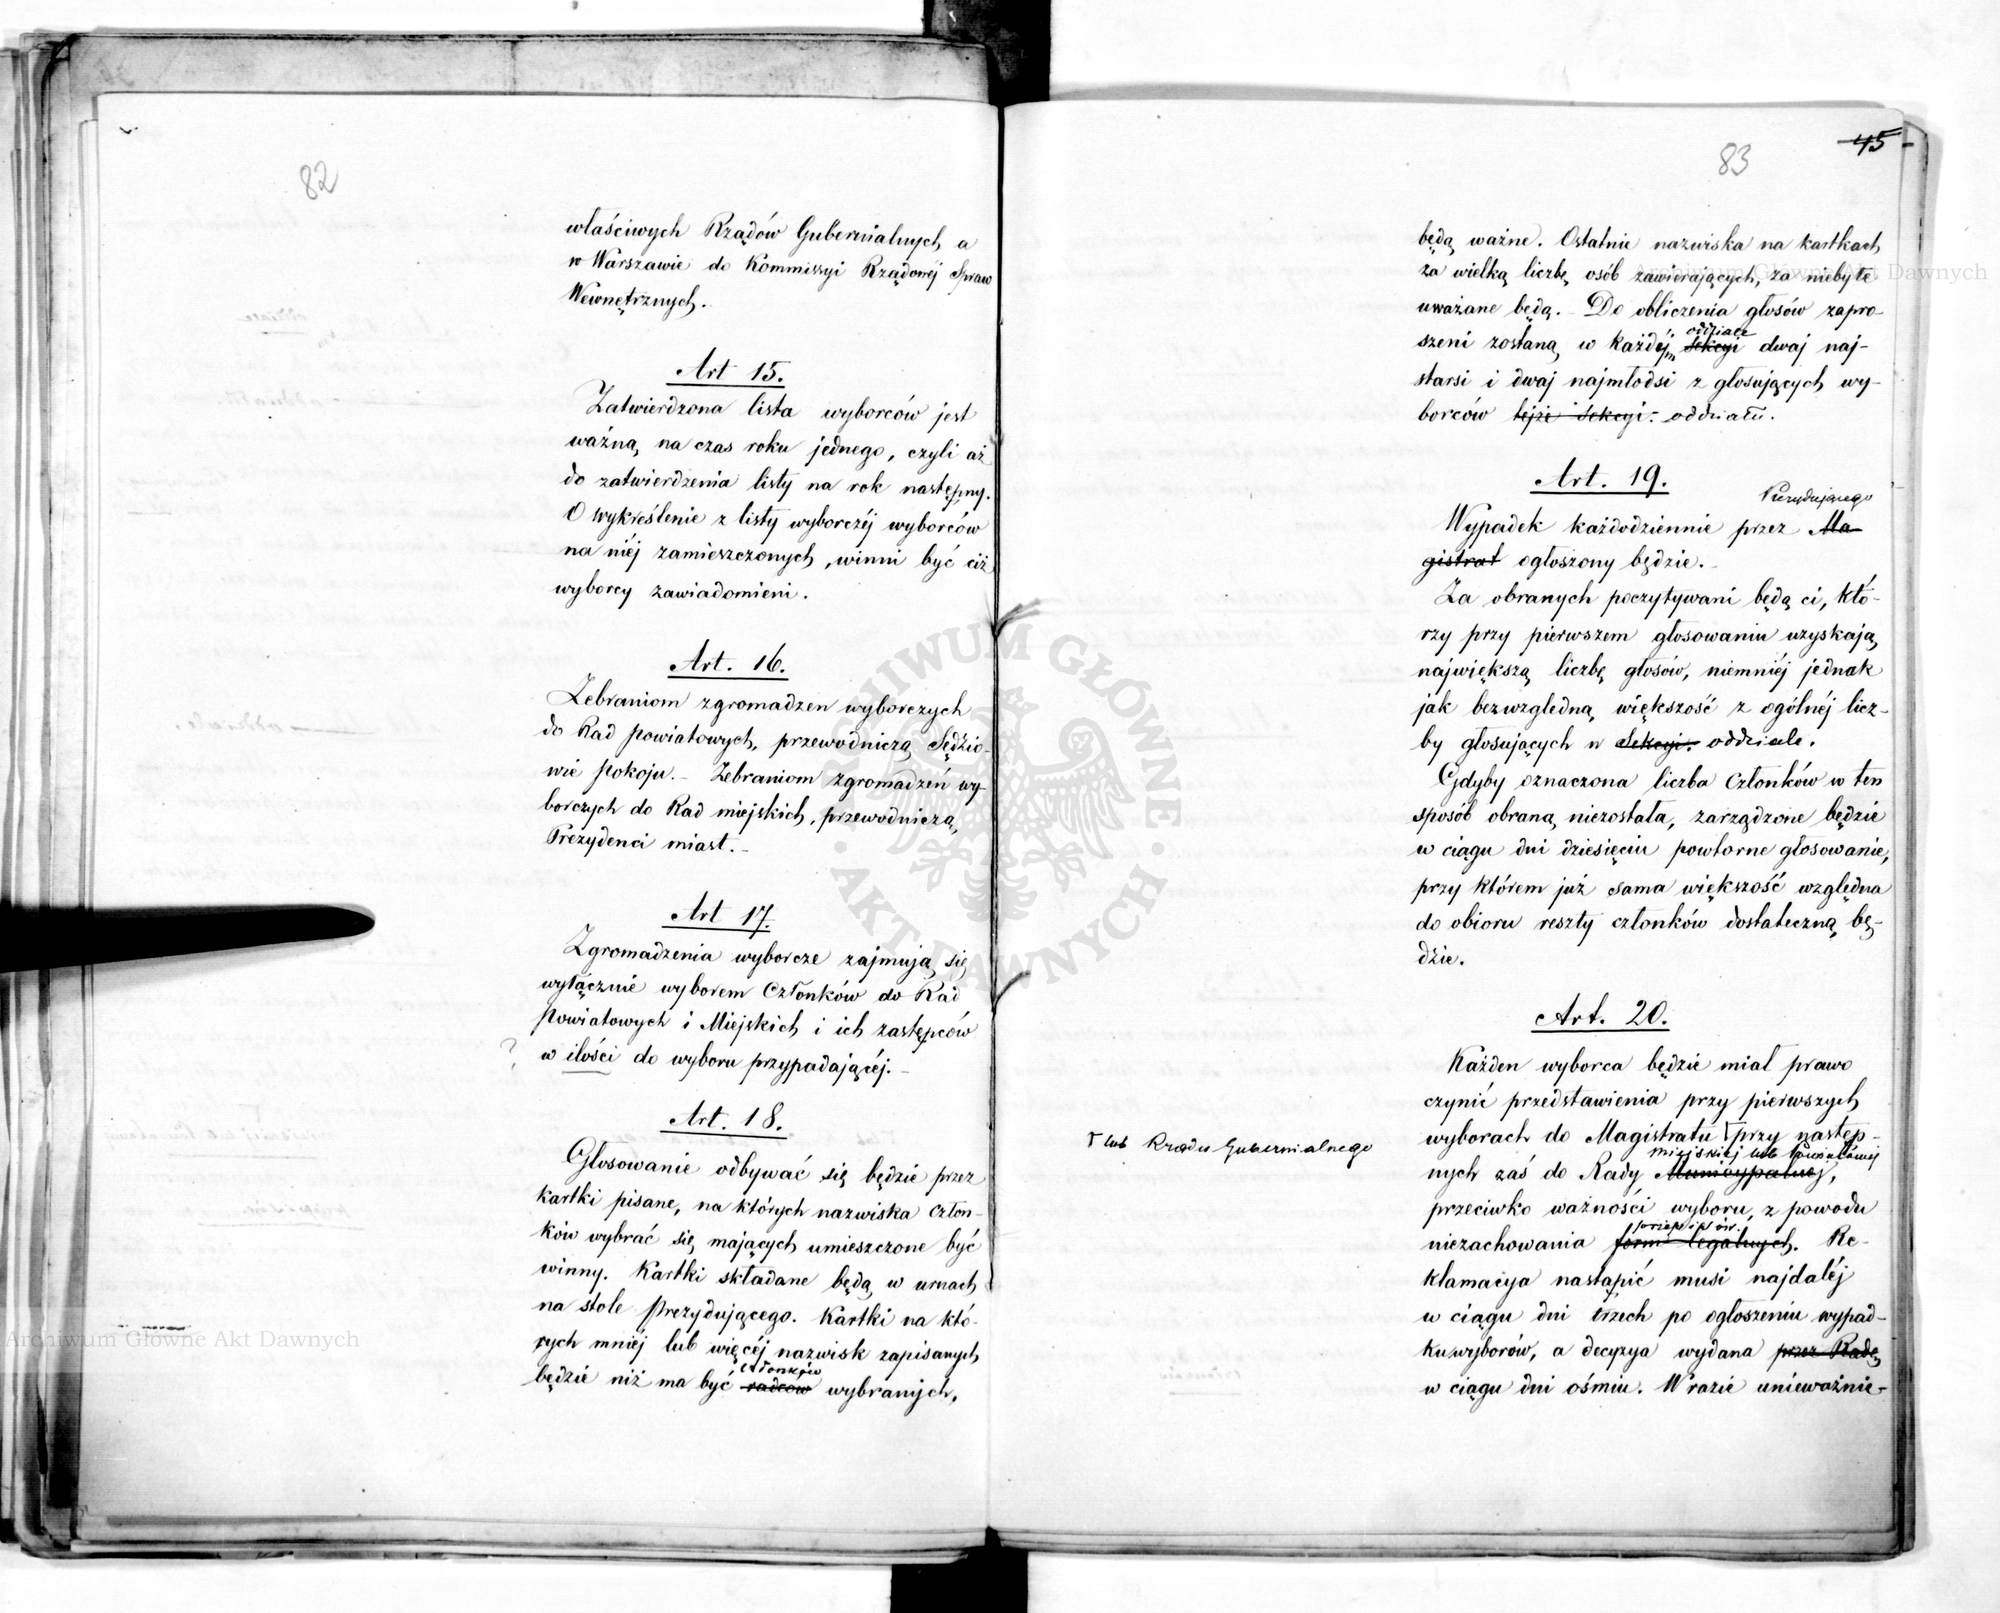 82
właściwych Rządów Gubernialnych, a
w Warszawie do Kommissyi Rządowéj Spraw
Wewnętrznych.
Art 15.
Zatwierdzona lista wyborców jest
ważną, na czas roku jednego, czyli aż
do zatwierdzenia listy na rok następny.
O wykreślenie z listy wyborczéj wyborców
na niéj zamieszczonych, winni być ciż
wyborcy zawiadomieni.
Art. 16.
Zebraniom zgromadzen wyborczych
do Rad Powiatowych, przewodniczą Sędzio-
wie Pokoju. - Zebraniom zgromadzeń wy-
borczych do Rad miejskich, przewodniczą,
Prezydenci miast. -
Art 17.
Zgromadzenia wyborcze zajmują się
wyłącznie wyborem Członków do Rad
Powiatowych i Miejskich i ich zastępców
? w ilości do wyboru przypadającéj. -
Art. 18.
Głosowanie odbywać się będzie przez
kartki pisane, na których nazwiska człon-
ków wybrać się mających umieszczone być
winny. Kartki składane będą w urnach
na stole Prezydującego. Kartki na któ-
rych mniéj lub więcéj nazwisk zapisanych
członków
będzie niż ma być radcow wybranych,
83
45
będą ważne. Ostatnie nazwiska na kartkach
za wielką liczbę osób zawierających, za niebyłe
uważane będą. - Do obliczenia głosów zapro-
oddziale
szeni zostaną w każdéj Sekcyi dwaj naj-
starsi i dwaj najmłodsi z głosujących wy-
borców tejże Sekcyi. - oddziału.
Art. 19.
Prezydującego
Wypadek każdodziennie przez Ma-
gistrat ogłoszony będzie. -
Za obranych poczytywani będą ci, któ-
rzy przy pierwszem głosowaniu uzyskają
największą liczbę głosów, niemniéj jednak
jak bezwzględną większość z ogólnéj licz-
by głosujących w Sekcyi. oddziale.
Gdyby oznaczona liczba Członków w ten
sposób obraną niezostała, zarządzone będzie
w ciągu dni dziesięciu powtorne głosowanie,
przy którem już sama większość względna
do obioru reszty członków dostateczną bę-
dzie.
Art. 20.
Każden wyborca będzie miał prawo
czynić przedstawienia przy pierwszych
wyborach do Magistratu przy następ-
lub Rządu Gubernialnego
miejskiej lub Powiatowej
nych zaś do Rady Municypalnej,
przeciwko ważności wyboru, z powodu
przepisów.
niezachowania form legalnych. Re-
klamacya nastąpić musi najdaléj
w ciągu dni trzech po ogłoszeniu wypad-
ku wyborów, a decyzya wydana przez Radę
w ciągu dni ośmiu. W razie unieważnie-
Archiwum Główne Akt Dawnych
Archiwum Główne Akt Dawnych
ARCHIWUM GŁÓWNE · AKT DAWNYCH ·